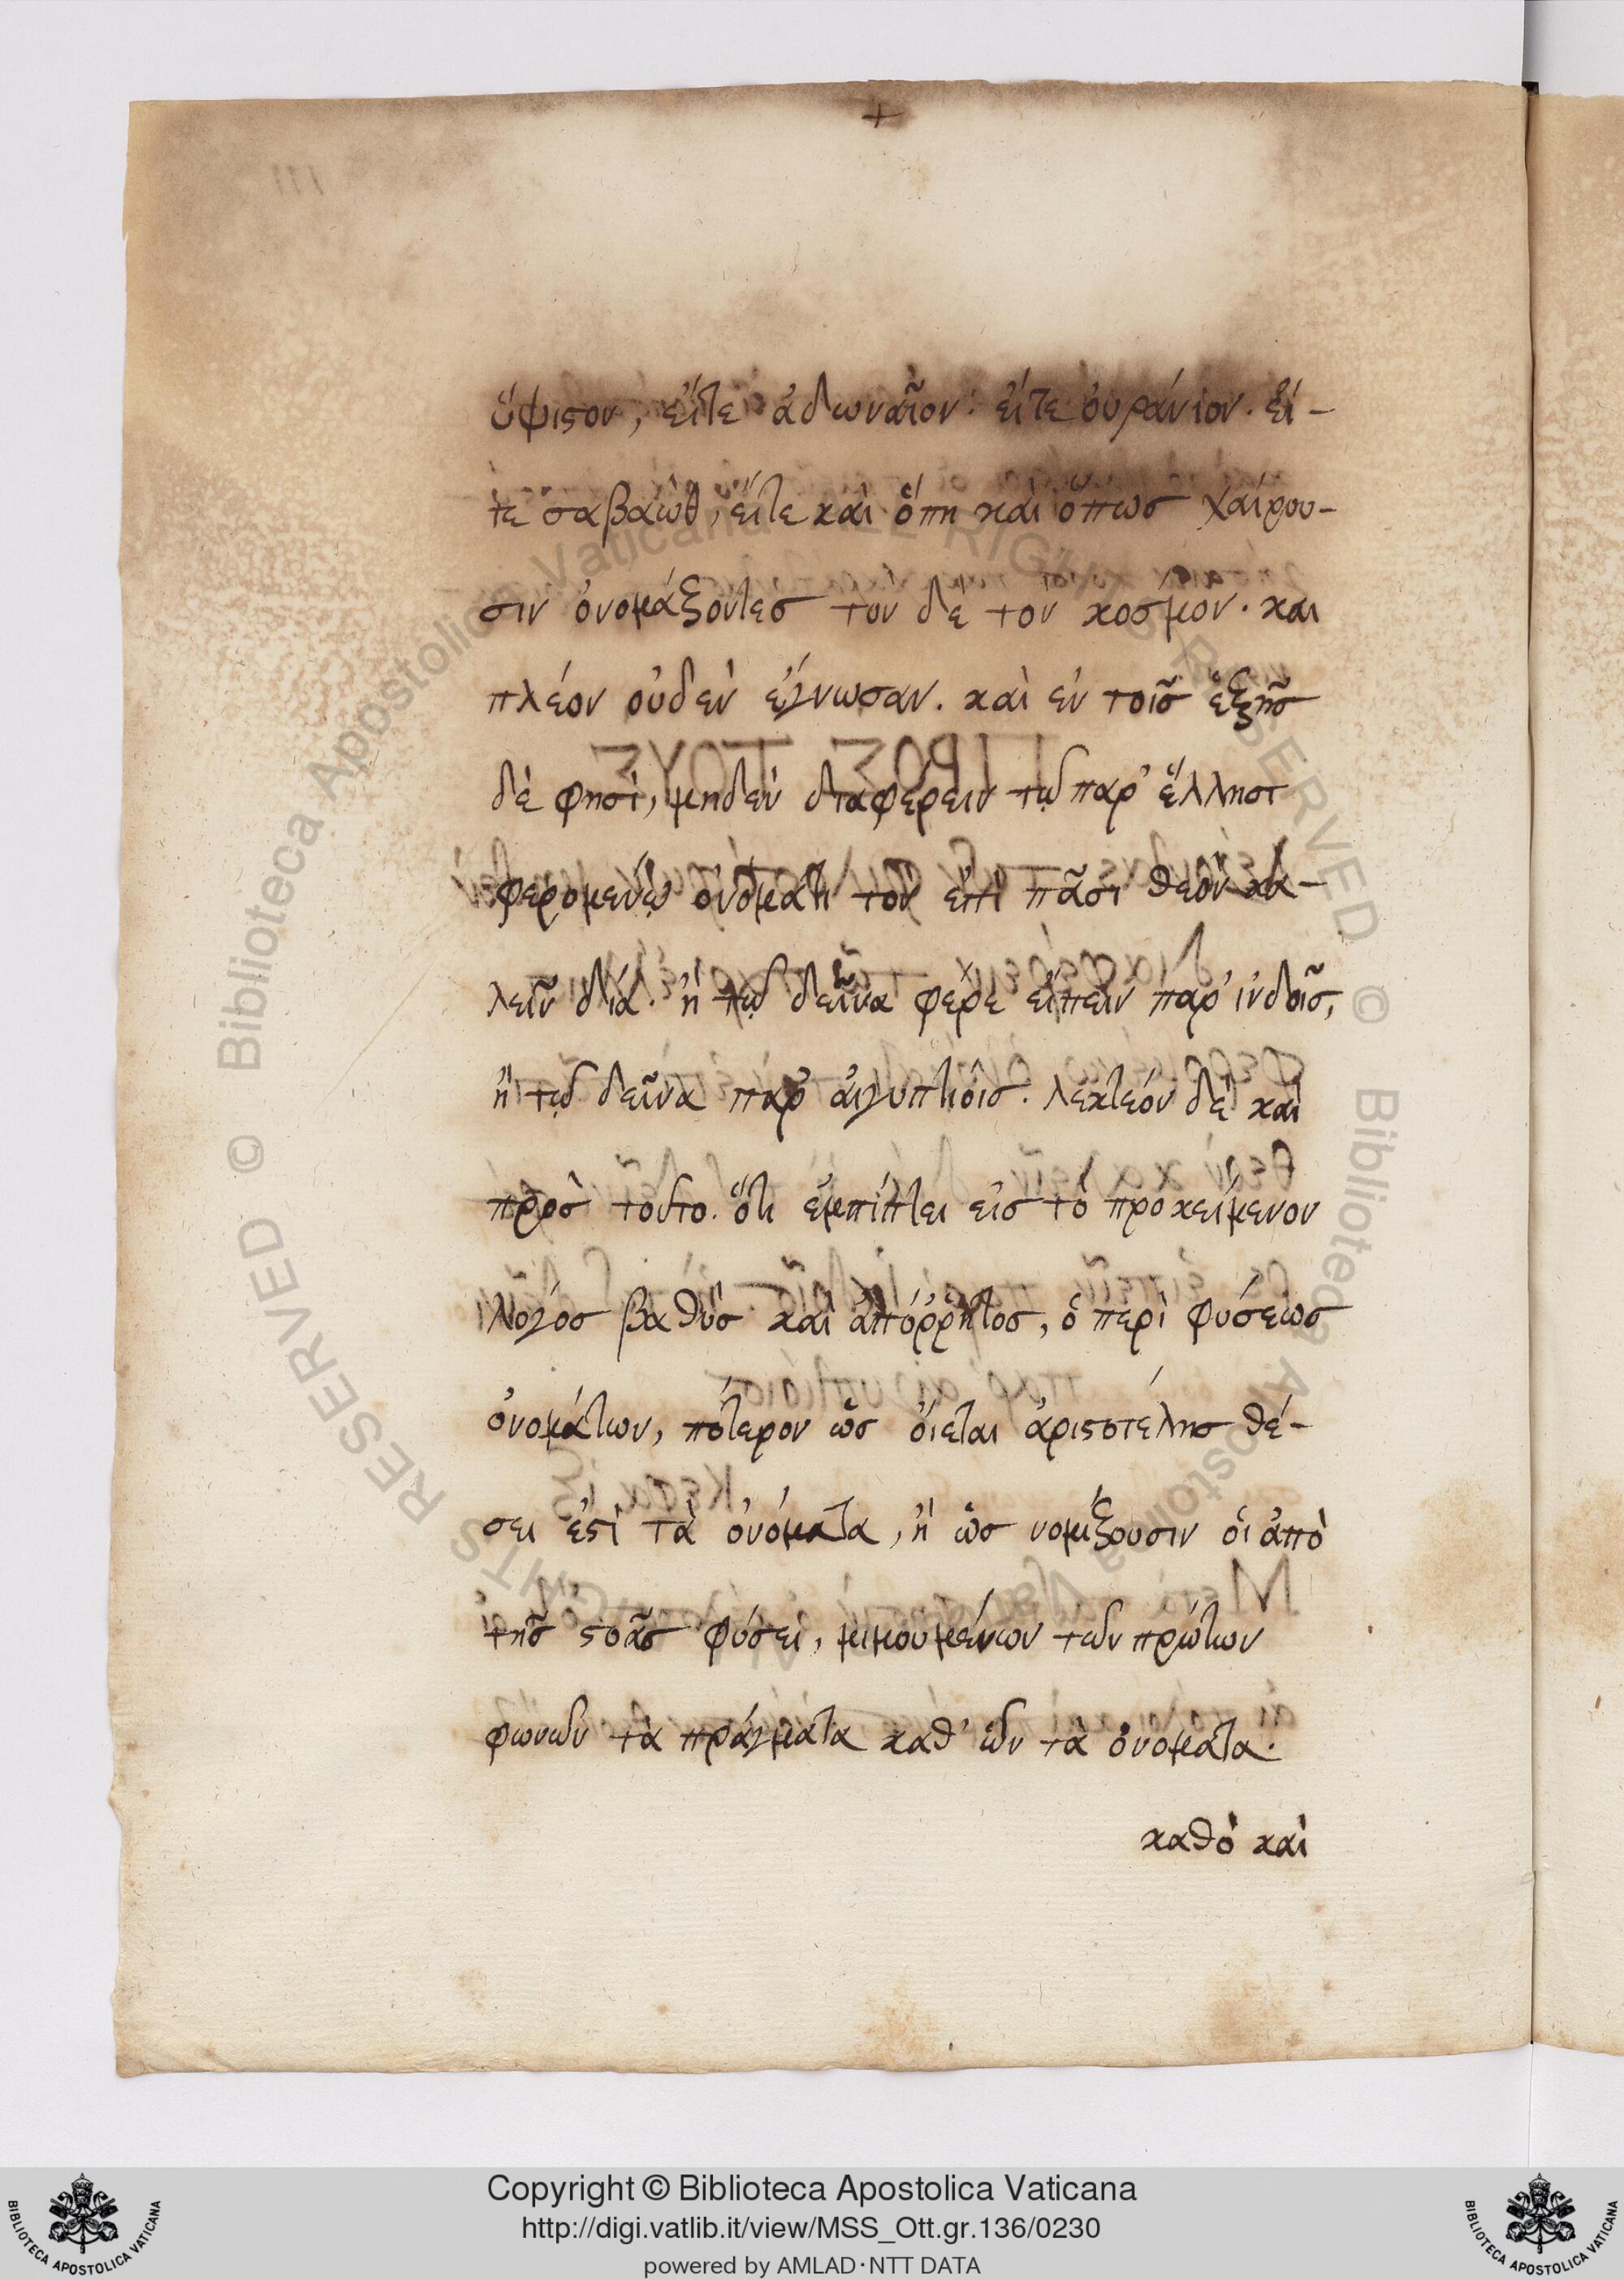 +
ὕψιϛον, εἴτε ἀδωναῖον· εἴτε οὐράνιον. εἴ-
τε σαβαὼθ, εἴτε καὶ ὅπη καὶ ὅπως χαίρου-
σιν ὀνομάζοντες τὸν δὲ τὸν κοσμον. και
πλέον οὐδεν ἔγνωσαν. καὶ εν τοῖς ἑξῆς
δέ φησι, μηδεν διαφέρειν τῷ παρ' ἕλλησι
φερομενῳ ὀνόματι τον ἐπὶ πᾶσι θεὸν κα-
λεῖν δία. ἢ τῷ δεῖνα φέρε εἰπεῖν παρ' ἰνδοῖς,
ἢ τῷ δεῖνα παρ' αἰγυπτίοις. λεκτέον δὲ καὶ
πρὸς τοῦτο. ὅτι εμπίπτει εἰς τὸ προκείμενον
λόγος βαθὺς καὶ ἀπόῤῥητος, ὁ περὶ φύσεως
ὀνομάτων, πότερον ὡς οἴεται ἀριϛοτέλης θέ-
σει ἐϛὶ τὰ ὀνόματα, ἢ ὡς νομίζουσιν οἱ ἀπὸ
τῆς ϛοᾶς φύσει, μιμουμένων τῶν πρώτων
φωνῶν τὰ πράγματα καθ' ὧν τὰ ὀνοματα.
καθὸ καὶ
Copyright © Biblioteca Apostolica Vaticana
http://digi.vatlib.it/view/MSS_Ott.gr.136/0230
powered by AMLAD·NTT DATA
BIBLIOTECA APOSTOLICA VATICANA
BIBLIOTECA APOSTOLICA VATICANA